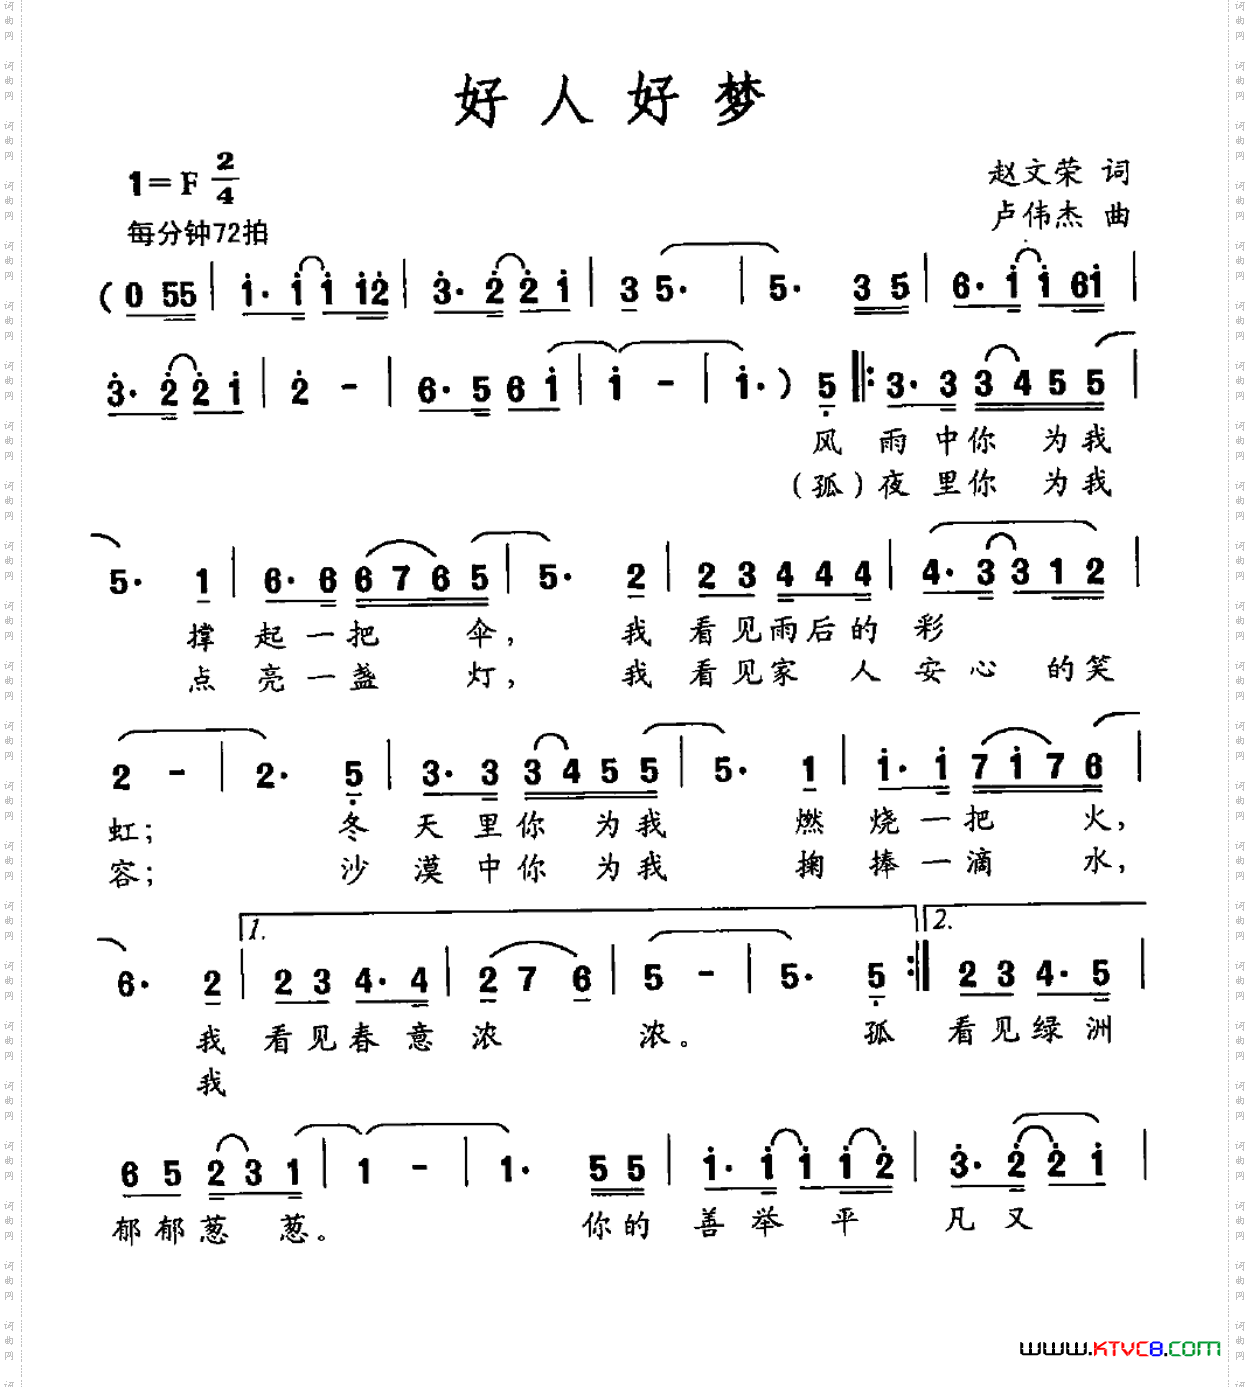 好人好梦
1=F 2/4
赵文荣 词
每分钟72拍
卢伟杰 曲
(0 55 | 1· 1 1 12 | 3· 2 2 1 | 3 5· | 5· 3 5 | 6· 1 1 61 |
3· 2 2 1 | 2 - | 6· 5 6 1 | 1 - | 1· ) 5 ‖: 3· 3 3 4 5 5 |
风 雨 中 你 为 我
(孤) 夜 里 你 为 我
5· 1 | 6· 6 6 7 6 5 | 5· 2 | 2 3 4 4 4 | 4· 3 3 1 2 |
撑 起 一 把 伞, 我 看 见 雨 后 的 彩
点 亮 一 盏 灯, 我 看 见 家 人 安 心 的 笑
2 - | 2· 5 | 3· 3 3 4 5 5 | 5· 1 | 1· 1 7 1 7 6 |
虹; 冬 天 里 你 为 我 燃 烧 一 把 火,
容; 沙 漠 中 你 为 我 掬 捧 一 滴 水,
1. 2.
6· 2 | 2 3 4· 4 | 2 7 6 | 5 - | 5· 5 :‖ 2 3 4· 5 |
我 看 见 春 意 浓 浓。 孤 看 见 绿 洲
我
6 5 2 3 1 | 1 - | 1· 5 5 | 1· 1 1 1 2 | 3· 2 2 1 |
郁 郁 葱 葱。 你 的 善 举 平 凡 又
www.KTVC8.com